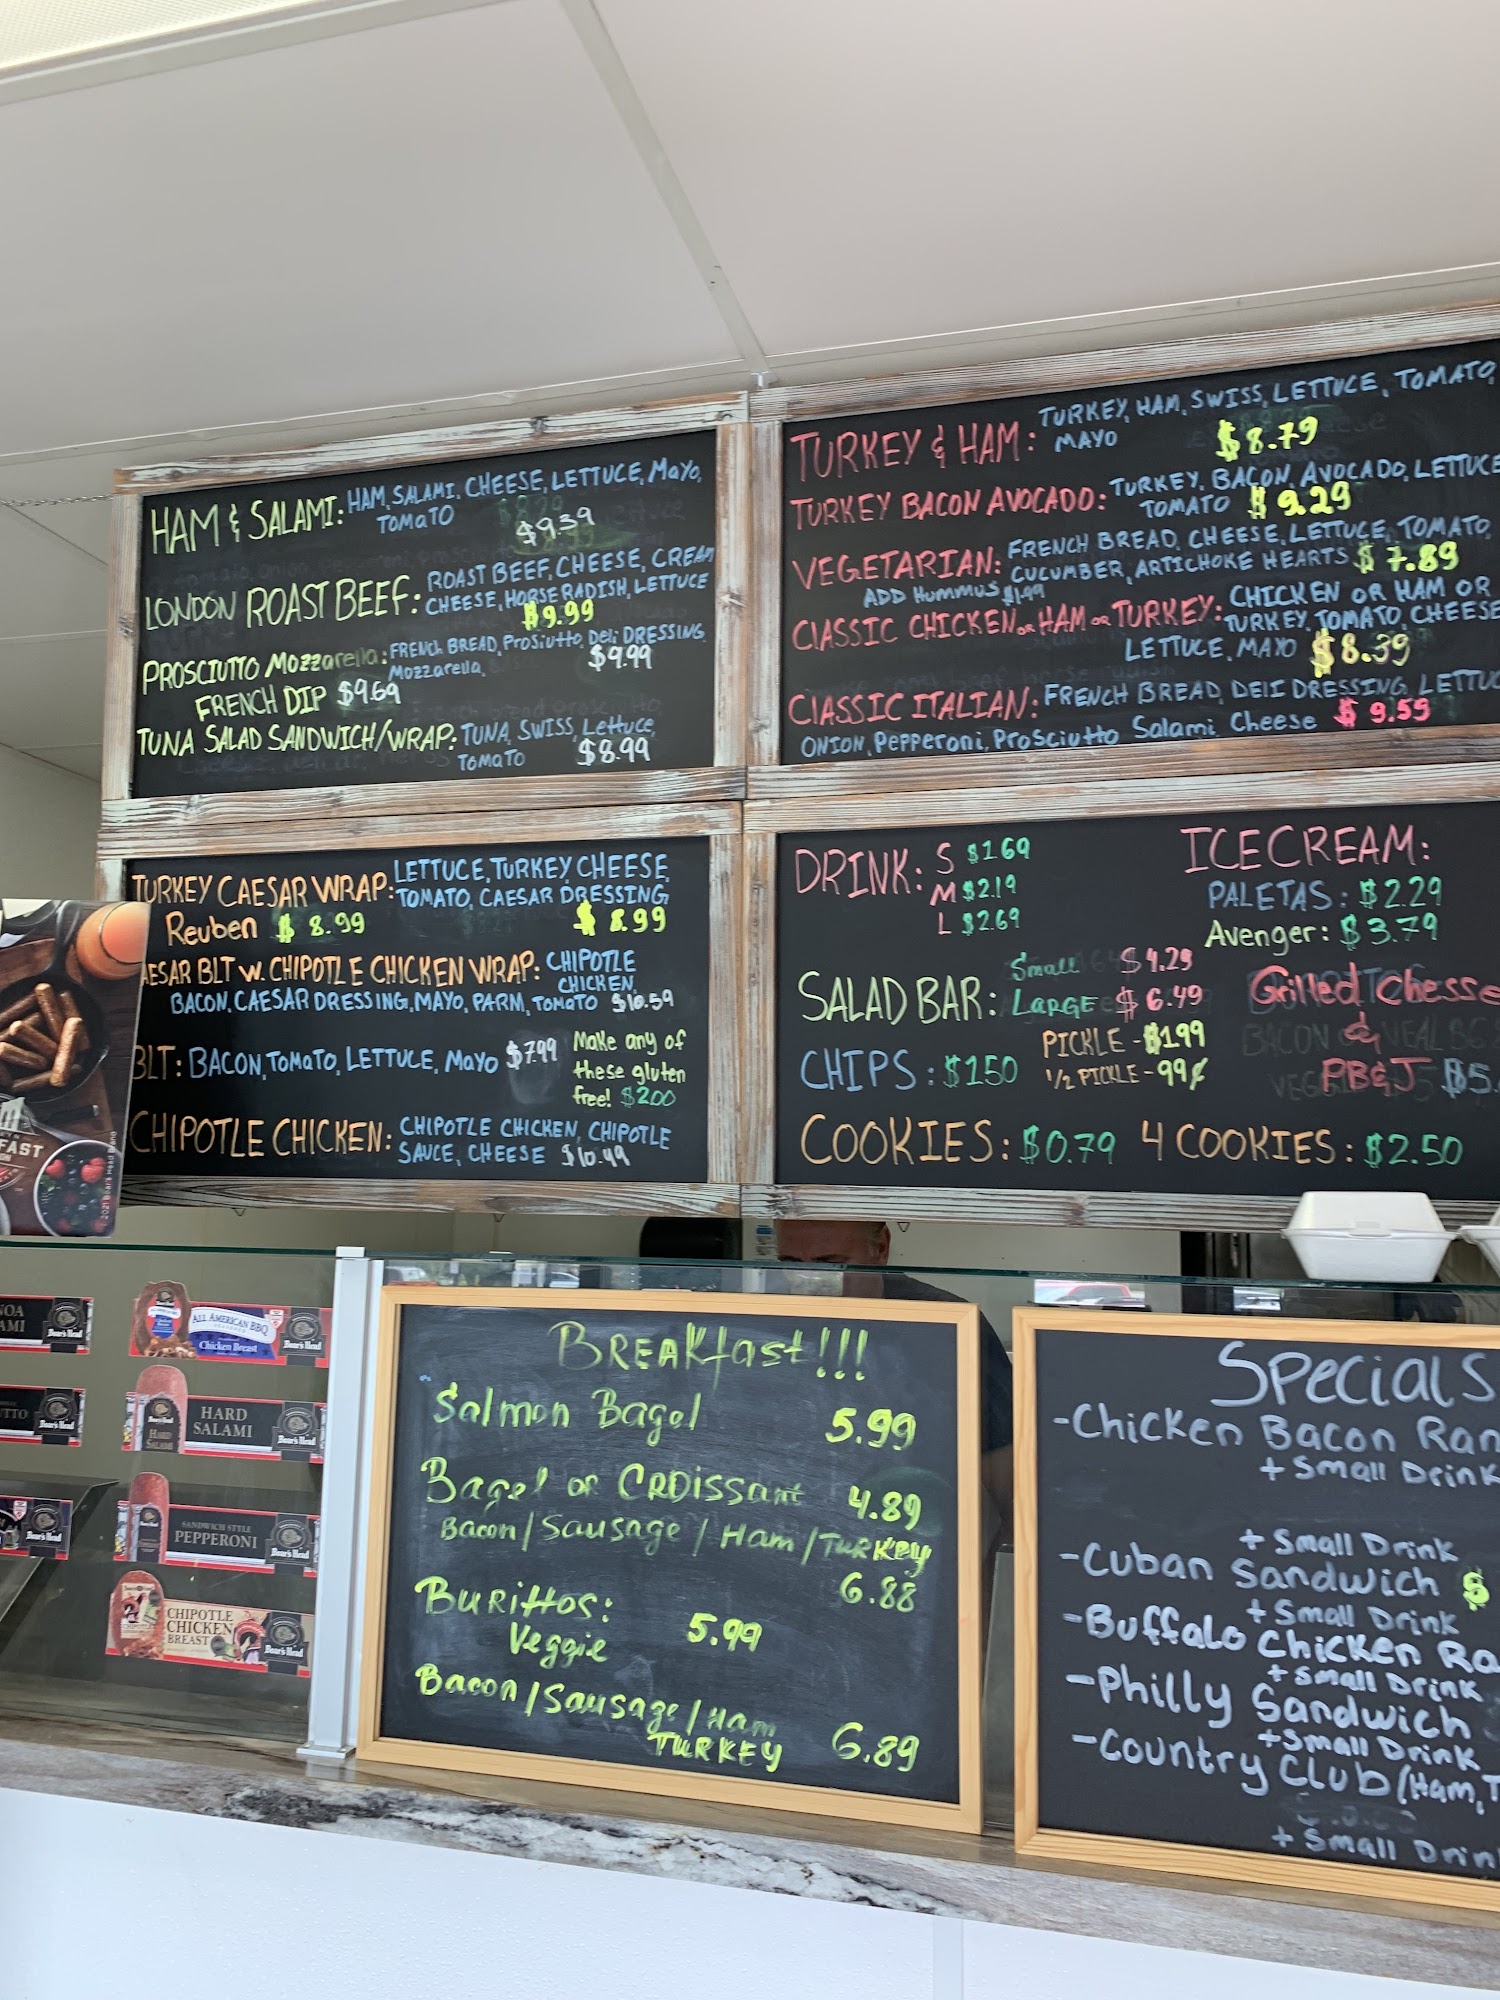 HAM & SALAMI: HAM, SALAMI, CHEESE, LETTUCE, MAYO,
TOMATO
$9.39
LONDON ROAST BEEF: ROAST BEEF, CHEESE, CREAM
CHEESE, HORSERADISH, LETTUCE
$9.99
PROSCIUTTO Mozzarella: FRENCH BREAD, ProSiutto, Deli DRESSING,
Mozzarella, $9.99
FRENCH DIP $9.69
TUNA SALAD SANDWICH/WRAP: TUNA, SWISS, Lettuce,
TOMATO $8.99
TURKEY & HAM: TURKEY, HAM, SWISS, LETTUCE, TOMATO,
MAYO $8.79
TURKEY BACON AVOCADO: TURKEY, BACON, AVOCADO, LETTUCE
TOMATO $9.29
VEGETARIAN: FRENCH BREAD, CHEESE, LETTUCE, TOMATO,
CUCUMBER, ARTICHOKE HEARTS $7.89
ADD Hummus $1.99
CLASSIC CHICKEN OR HAM OR TURKEY: CHICKEN OR HAM OR
TURKEY, TOMATO, CHEESE
LETTUCE, MAYO $8.39
CLASSIC ITALIAN: FRENCH BREAD, DELI DRESSING, LETTUC
ONION, Pepperoni, ProSciutto Salami, Cheese $9.59
TURKEY CAESAR WRAP: LETTUCE, TURKEY CHEESE,
TOMATO, CAESAR DRESSING
Reuben $8.99 $8.99
AESAR BLT W. CHIPOTLE CHICKEN WRAP: CHIPOTLE
CHICKEN,
BACON, CAESAR DRESSING, MAYO, PARM, TOMATO $10.59
BLT: BACON, TOMATO, LETTUCE, MAYO $7.99
Make any of
these gluten
free! $2.00
CHIPOTLE CHICKEN: CHIPOTLE CHICKEN, CHIPOTLE
SAUCE, CHEESE $10.49
DRINK: S $1.69
M $2.19
L $2.69
ICE CREAM:
PALETAS: $2.29
Avenger: $3.79
SALAD BAR: Small $4.29
LARGE $6.49
Grilled Chesse
&
PB&J $5.
CHIPS: $1.50
PICKLE - $1.99
1/2 PICKLE - 99¢
COOKIES: $0.79 4 COOKIES: $2.50
FAST
© 2021 Boar's Head Brand
NOA
AMI
Boar's Head
UTTO
Boar's Head
Boar's Head
ALL AMERICAN BBQ
Chicken Breast
Boar's Head
HARD
SALAMI
Boar's Head
SANDWICH STYLE
PEPPERONI
Boar's Head
CHIPOTLE
CHICKEN
BREAST
Boar's Head
BREAKfast!!!
Salmon Bagel 5.99
Bagel or CROissant 4.89
Bacon/Sausage/Ham/TURKEY
6.88
BURittos:
Veggie 5.99
Bacon/Sausage/Ham
TURKEY 6.89
Specials
-Chicken Bacon Ran
+ Small Drink
+ Small Drink
-Cuban Sandwich $
+ Small Drink
-Buffalo Chicken Ra
+ Small Drink
-Philly Sandwich
+ Small Drink
-Country Club (Ham, T
+ Small Drin